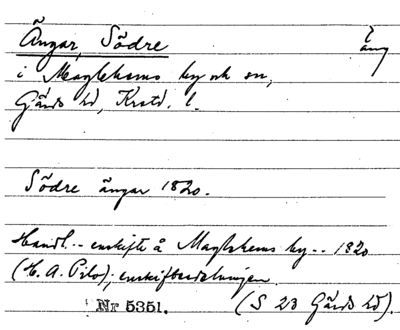 Ängar, Södre äng
i Maglehems by ock sn,
Gärds hd, Krstd. l.
Södre ängar 1820.
Handl. .. enskifte å Maglehems by .. 1820
(H. A. Pilo); enskiftesdelningen.
Nr 5351. (S 23 Gärds hd).